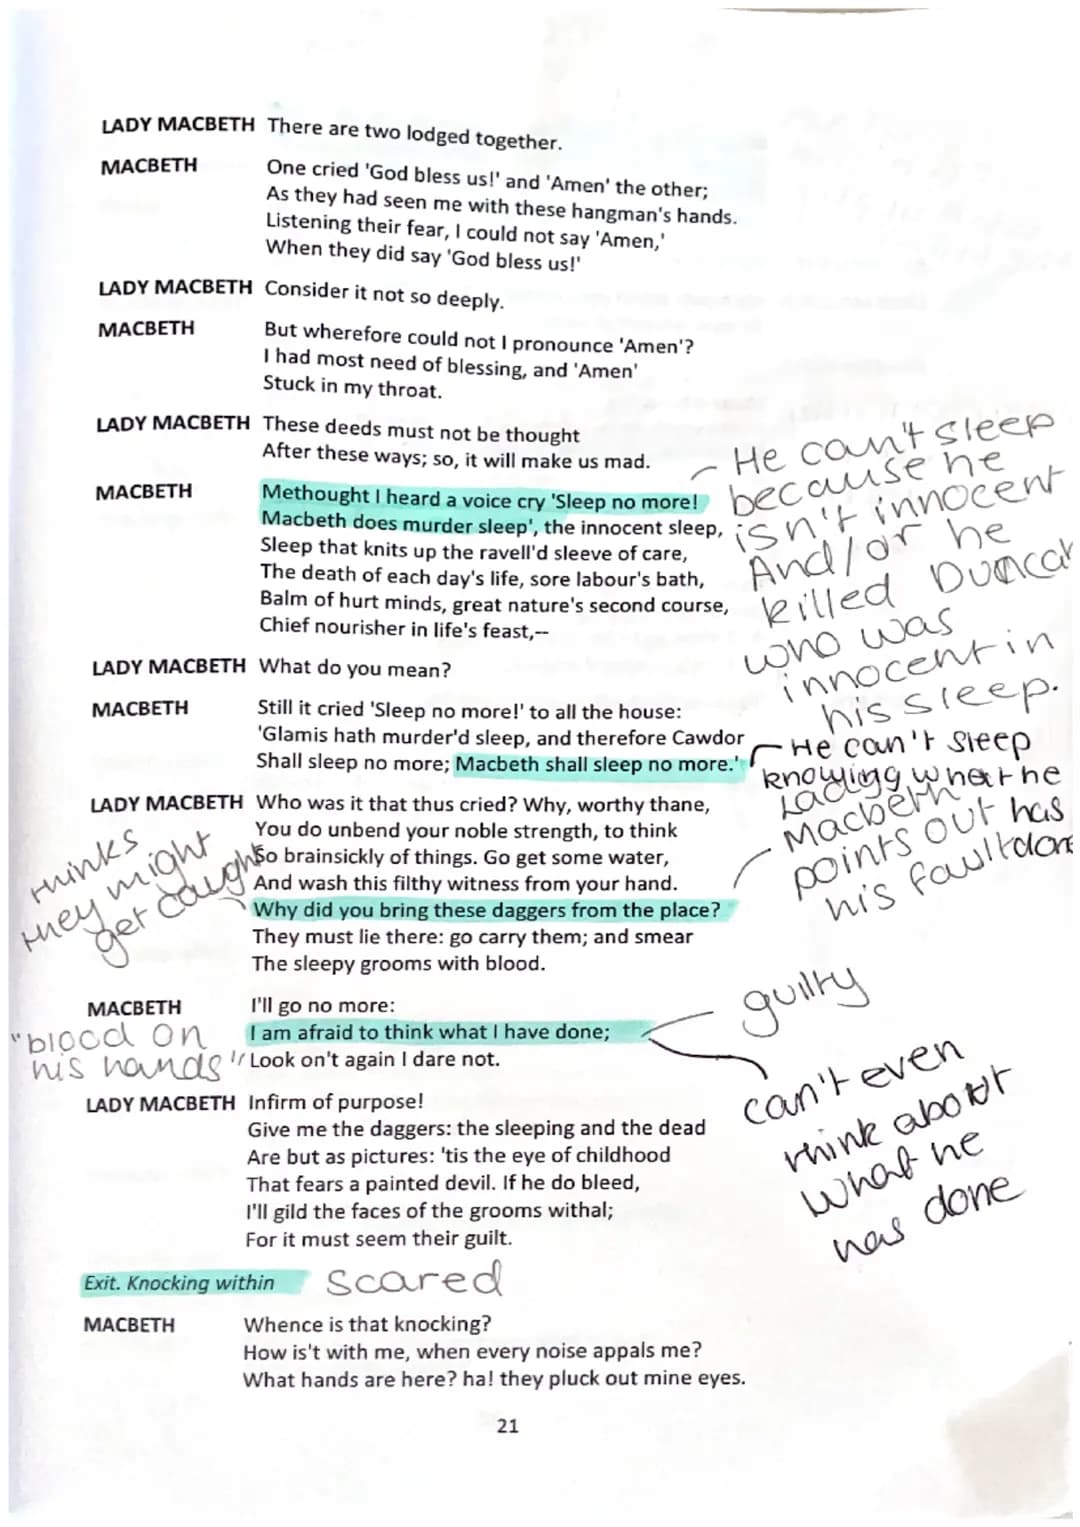 LADY MACBETH There are two lodged together.
MACBETH One cried 'God bless us!' and 'Amen' the other;
As they had seen me with these hangman's hands.
Listening their fear, I could not say 'Amen,'
When they did say 'God bless us!'
LADY MACBETH Consider it not so deeply.
MACBETH But wherefore could not I pronounce 'Amen'?
I had most need of blessing, and 'Amen'
Stuck in my throat.
LADY MACBETH These deeds must not be thought
After these ways; so, it will make us mad.
MACBETH Methought I heard a voice cry 'Sleep no more!
Macbeth does murder sleep', the innocent sleep,
Sleep that knits up the ravell'd sleeve of care,
The death of each day's life, sore labour's bath,
Balm of hurt minds, great nature's second course,
Chief nourisher in life's feast,--
He can't sleep
because he
isn't innocent
And/or he
killed Duncan
who was
innocent in
his sleep.
LADY MACBETH What do you mean?
MACBETH Still it cried 'Sleep no more!' to all the house:
'Glamis hath murder'd sleep, and therefore Cawdor
Shall sleep no more; Macbeth shall sleep no more.'
He can't sleep
knowing what he
has
done
LADY MACBETH Who was it that thus cried? Why, worthy thane,
You do unbend your noble strength, to think
So brainsickly of things. Go get some water,
And wash this filthy witness from your hand.
Why did you bring these daggers from the place?
They must lie there: go carry them; and smear
The sleepy grooms with blood.
Lady
Macbeth
points out
his fault
thinks
they might
get caught
MACBETH I'll go no more:
I am afraid to think what I have done;
Look on't again I dare not.
"blood on
his hands"
guilty
can't even
think about
what he
has done
LADY MACBETH Infirm of purpose!
Give me the daggers: the sleeping and the dead
Are but as pictures: 'tis the eye of childhood
That fears a painted devil. If he do bleed,
I'll gild the faces of the grooms withal;
For it must seem their guilt.
Exit. Knocking within scared
MACBETH Whence is that knocking?
How is't with me, when every noise appals me?
What hands are here? ha! they pluck out mine eyes.
21